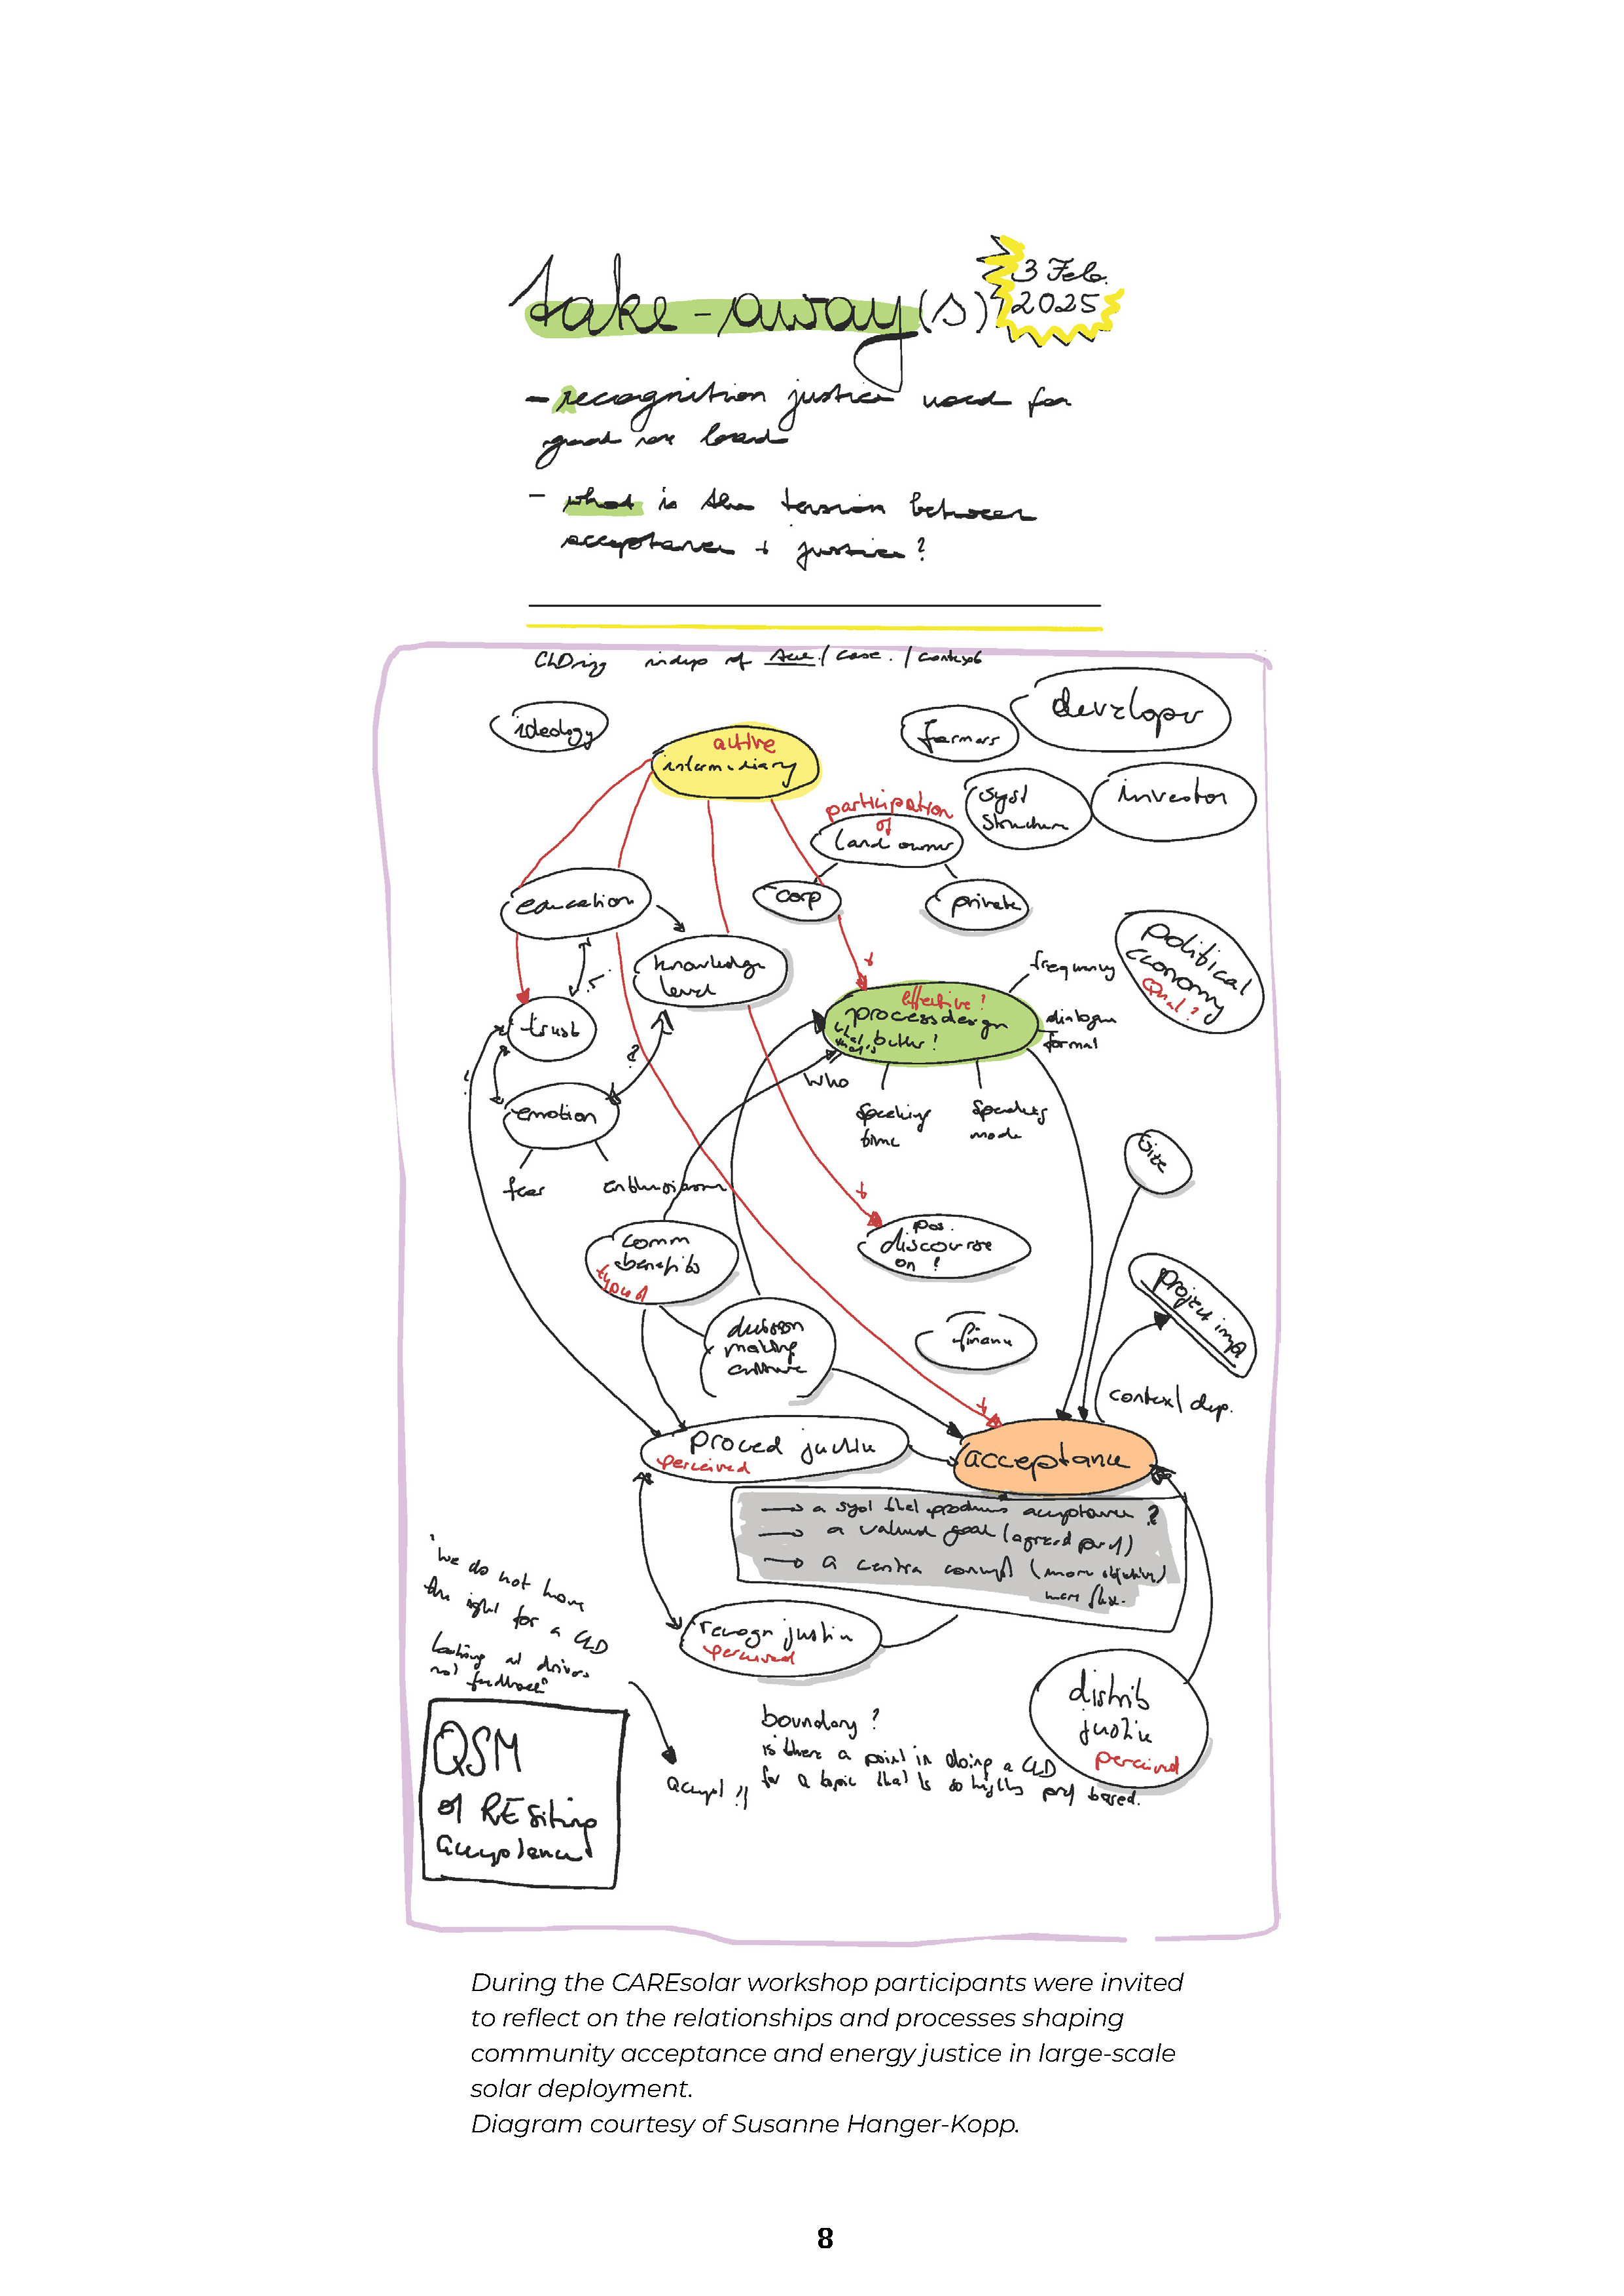 take-away(s)
3 Feb.
2025
- recognition justice used for
good or bad
- what is the tension between
acceptance + justice?
CLDing indep of / case. / context
ideology
active
intermediary
farmers
developer
syst
structure
investor
participation
of
land owner
corp
private
education
knowledge
level
political
economy
Qual?
frequency
effective?
process design
better?
dialogue
format
trust
?
?
who
speaking
time
speakers
mode
emotion
fear
enthusiasm
size
comm
benefits
type of
pos.
discourse
on?
project imp
decision
making
culture
finance
context dep.
proced justice
perceived
acceptance
→ a syst that produces acceptance?
→ a valued goal (agreed part)
→ a central concept (more objective)
more
"we do not have
the right for a CLD
looking at drivers
not feedback"
recogn justice
perceived
distrib
justice
perceived
QSM
of RE siting
acceptance
accept!!
boundary?
is there a point in doing a CLD
for a topic that is so highly based.
During the CAREsolar workshop participants were invited
to reflect on the relationships and processes shaping
community acceptance and energy justice in large-scale
solar deployment.
Diagram courtesy of Susanne Hanger-Kopp.
8